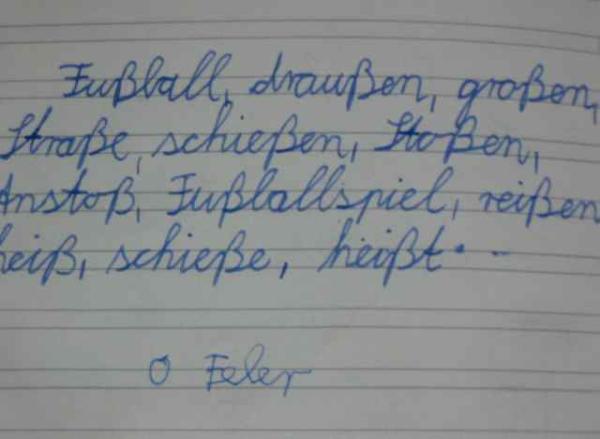 Fußball, draußen, großen,
Straße, schießen, Stoßen,
Anstoß, Fußballspiel, reißen
heiß, schieße, heißt...
0 Feler